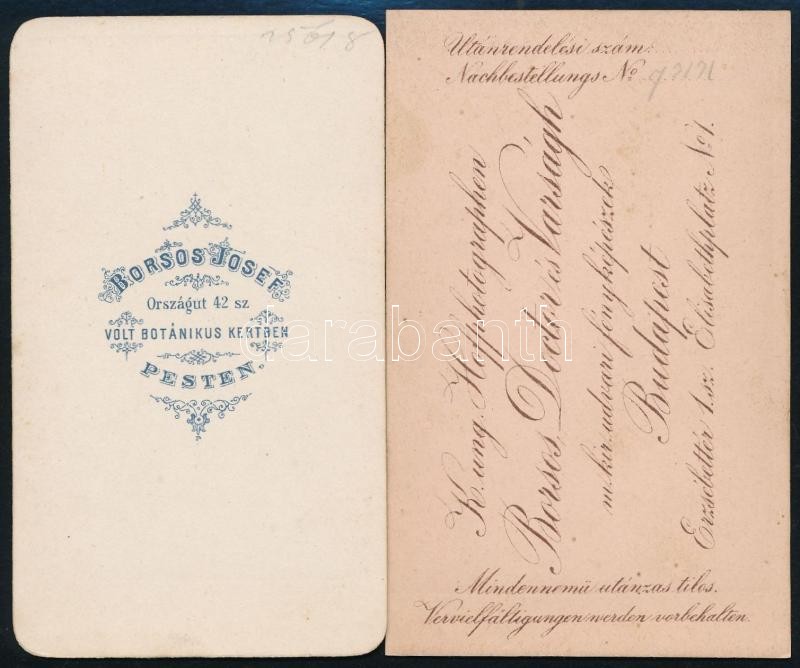 25618
BORSOS JOSEF
Országut 42 sz
VOLT BOTÁNIKUS KERTBEN
PESTEN.
Utánrendelési szám:
Nachbestellungs No
K. ung. Hofphotographen
Borsos, Doctor és Varságh
m. kir. udvari fényképészek
Budapest
Erzsébettér 1. sz. Elisabethplatz No 1.
Mindennemü utánzas tilos.
Vervielfältigungen werden vorbehalten.
darabanth